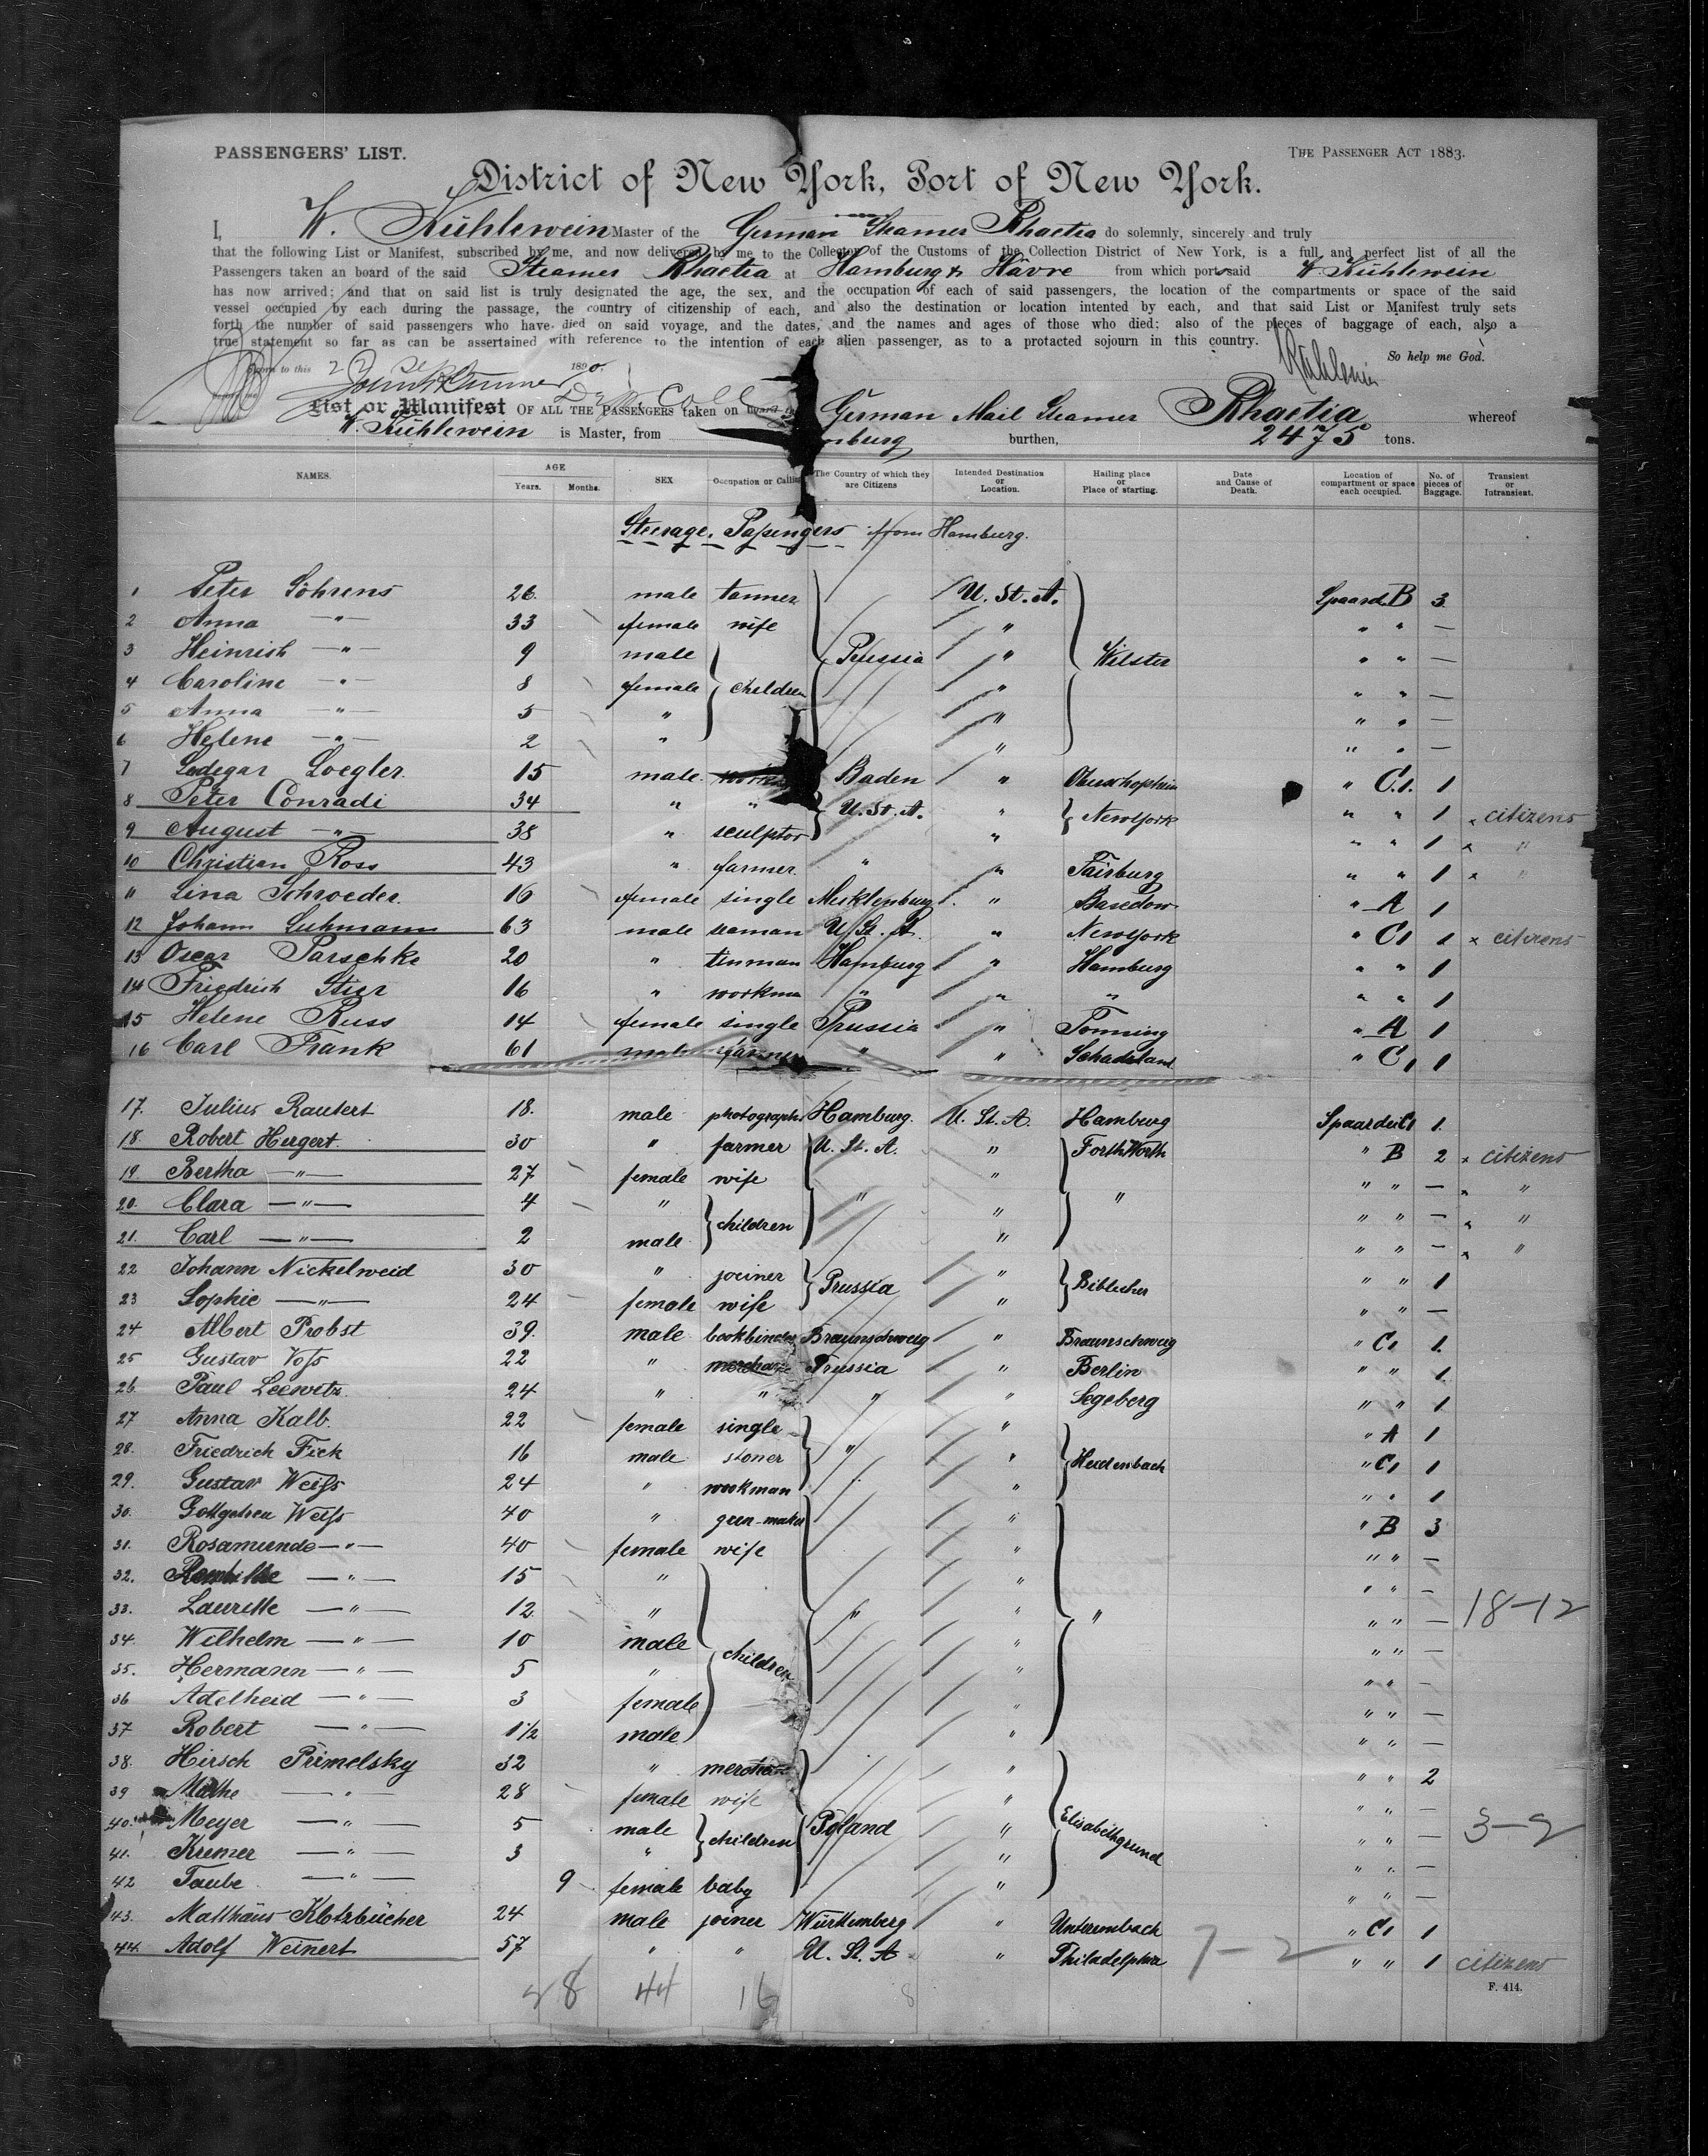 PASSENGERS' LIST.
THE PASSENGER ACT 1883.
District of New York, Port of New York.
I, W. Kühlewein Master of the German Steamer Rhaetia do solemnly, sincerely and truly
that the following List or Manifest, subscribed by me, and now delivered by me to the Collector of the Customs of the Collection District of New York, is a full and perfect list of all the
Passengers taken an board of the said Steamer Rhaetia at Hamburg & Havre from which ports said W. Kühlewein
has now arrived; and that on said list is truly designated the age, the sex, and the occupation of each of said passengers, the location of the compartments or space of the said
vessel occupied by each during the passage, the country of citizenship of each, and also the destination or location intented by each, and that said List or Manifest truly sets
forth the number of said passengers who have died on said voyage, and the dates, and the names and ages of those who died; also of the pieces of baggage of each, also a
true statement so far as can be assertained with reference to the intention of each alien passenger, as to a protacted sojourn in this country.
Kühlewein So help me God.
to this 22 1890.
List or Manifest OF ALL THE PASSENGERS taken on board German Mail Steamer Rhaetia whereof
W. Kühlewein is Master, from burthen, 2475 tons.
NAMES. AGE Years. Months. SEX Occupation or Calling The Country of which they are Citizens Intended Destination or Location. Hailing place or Place of starting. Date and Cause of Death. Location of compartment or space each occupied. No. of pieces of Baggage. Transient or Intransient.
Steerage Passengers from Hamburg.
1 Peter Söhrens 26. male tanner U. St. A. Spaard. B 3
2 Anna —"— 33 female wife " " " —
3 Heinrich —"— 9 male Prussia " Wilster " " —
4 Caroline —"— 8 female children " " " —
5 Anna —"— 5 " " " " —
6 Helene —"— 2 " " " " —
7 Ledegar Loegler 15 male Baden " " C1. 1
8 Peter Conradi 34 " " U. St. A. " Newyork " " 1 x citizens
9 August —"— 38 " sculptor " " " 1 x "
10 Christian Ross 43 " farmer " " Fairburg " " 1 x "
11 Lina Schroeder. 16 female single Mecklenburg " Basedow " A 1
12 Johann Luhmann 63 male seaman U. St. A. " Newyork " C1 1 x citizens
13 Oscar Parschke 20 " tinman Hamburg " Hamburg " " 1
14 Friedrich Stier 16 " workman " " " " " 1
15 Helene Russ 14 female single Prussia " Tonning " A 1
16 Carl Prank 61 male farmer " " " C1 1
17. Julius Rautert 18. male photograph Hamburg. U. St. A. Hamburg Spaardeck C1 1.
18. Robert Hergert. 30 " farmer U. St. A. " Forth Worth " B 2 x citizens
19. Bertha —"— 27 female wife " " " — x "
20. Clara —"— 4 " children " " " " " — x "
21. Carl —"— 2 male " " " — x "
22 Johann Nickelweid 30 " joiner Prussia " " " 1
23 Sophie —"— 24 female wife " " " —
24 Albert Probst 39. male bookbinder Braunschweig " Braunschweig " C1 1.
25 Gustav Voß 22 " merchant Prussia " Berlin " " 1.
26. Paul Leewitz 24 " " " " Segeberg " " 1
27 Anna Kalb. 22 female single " " A 1
28. Friedrich Fick 16 male stoner " " Heidenbach " C1 1
29. Gustav Weiß 24 " workman " " " 1
30. Weiß 40 " " " B 3
31. Rosamunde —"— 40 female wife " " " —
32. —"— 15 " " " " —
33. Laurette —"— 12 " " " " " " — 18-12
34. Wilhelm —"— 10 male children " " " —
35. Hermann —"— 5 " " " " —
36 Adelheid —"— 3 female " " " —
37 Robert —"— 1½ male " " " —
38. Hirsch Primelsky 32 " merchant " " " 2
39 —"— 28 female wife " " " —
40. Meyer —"— 5 male children Poland " Elisabethgrund " " — 3-2
41. Kremer —"— 3 " " " " —
42 Taube —"— 9 female baby " " " —
43. Matthäus Klotzbücher 24 male joiner Württemberg " " C1 1
44. Adolf Weinert 57 " " U. St. A " Philadelphia 7-2 " " 1 citizens
28 44 16 8
F. 414.